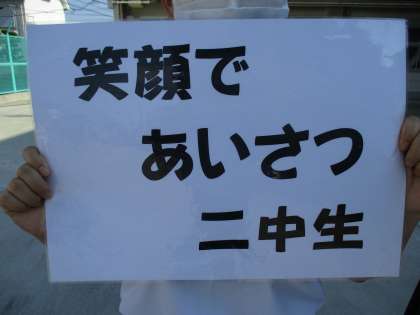 笑顔で
あいさつ
二中生